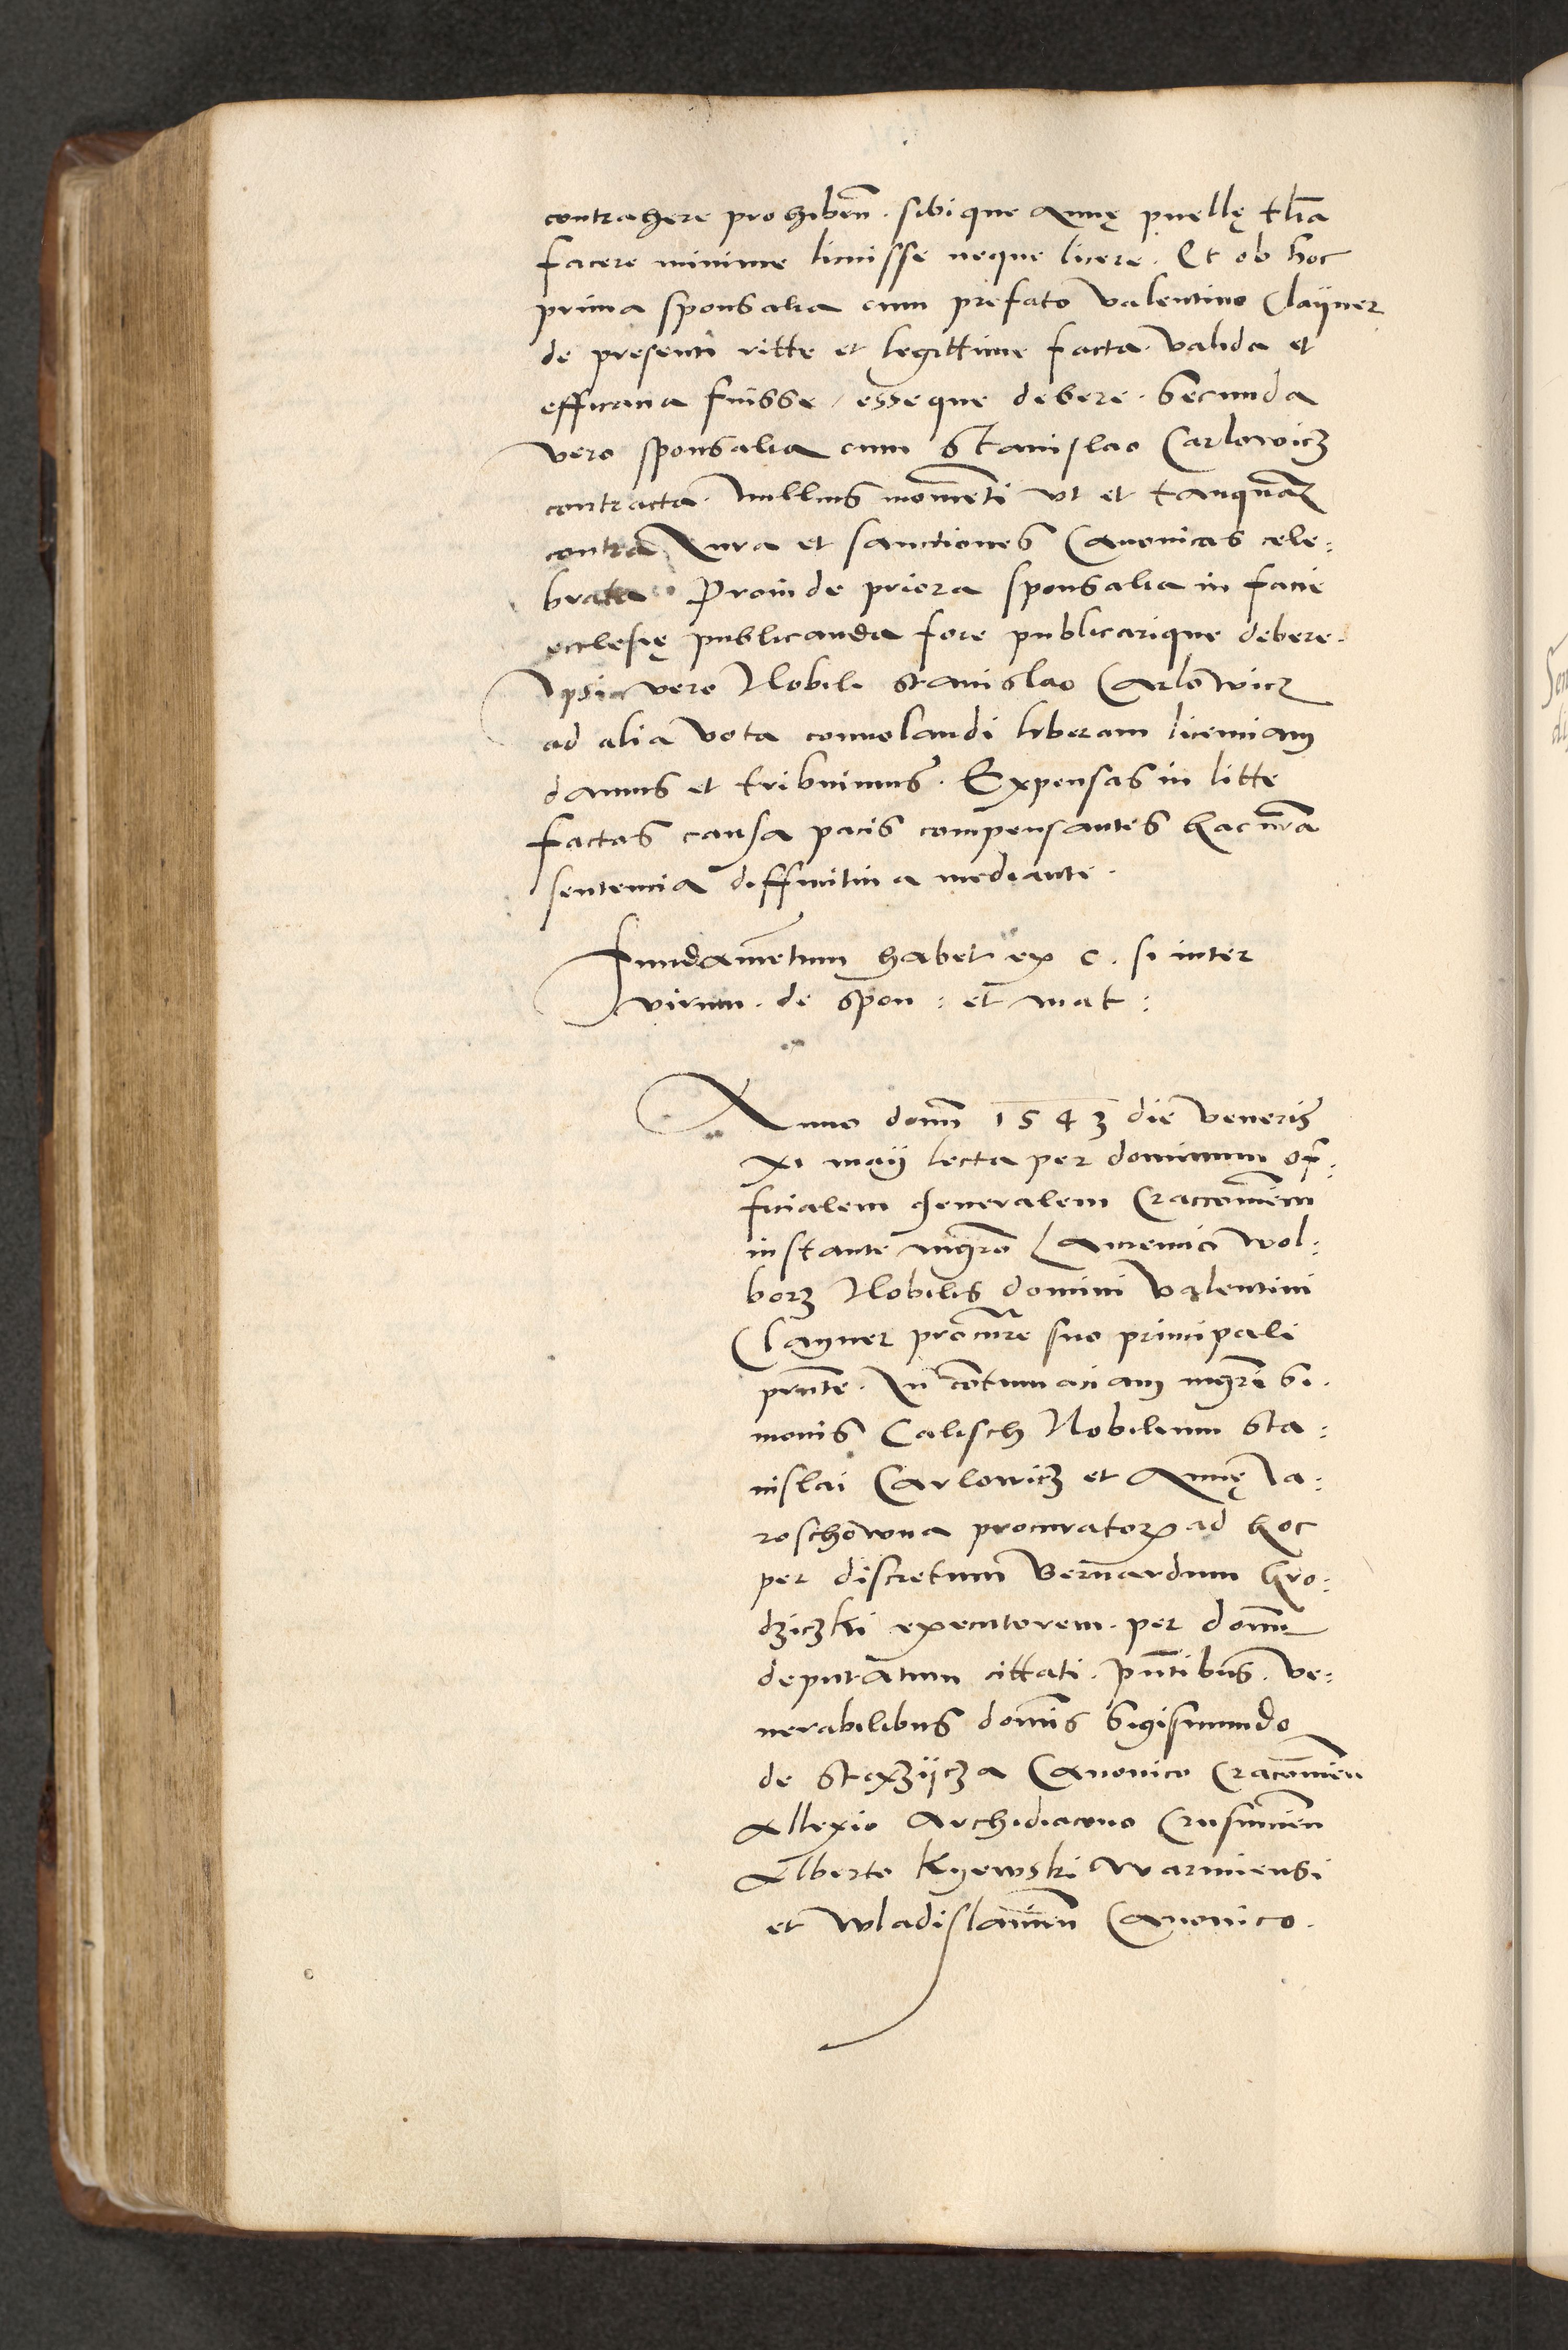 contrahere prohiben̄. sibique Annę puellę tl̄ia
facere minime licuisse neque licere. Et ob hoc
prima sponsalia cum prefato Valentino Clayner
de presenti ritte et legittime facta valida et
efficatia fuisse / esseque debere. Secunda
vero sponsalia cum Stanislao Carlowicz
contracta nullius momēti ut et tanquaʒ
contra Iura et sanctiones Canonicas cele:
brata. Proinde priora sponsalia in facie
ecclesię publicanda fore publicarique debere.
Ipsi vero Nobili Stanislao Carlowicz
ad alia vota convolandi liberam licenciam
damus et tribuimus. Expensas in litte
factas causa pacis compensantes hac nr̄a
sentencia diffinitiva mediante.
Fundamētum habet ex c. si inter
virum. de spon: et mat:
Anno domī 1543 die Veneris
XI maÿ lecta per dominum of:
ficialem generalem Craccouieñ
instante mgr̄o Laurencio Wol:
borz Nobilis domini Valentini
Clayner procur̄e suo principali
pn̄te. In cōtumaciam mgr̄i Si:
monis Calisch Nobilium Sta:
nislai Carlowicz et Annę Ia:
roschowna procurator ad hoc
per discretum Bernardum Gro:
dziczki executorem. per domī
deputatum cittati. pn̄tibus. Ve:
nerabilibus domīs Sigismundo
de Stęzÿcza Canonico Cracouieñ
Allexio Archidiacono Crusuicieñ
Alberto Kyewski Warmiensi
et Wladislauieñ Canonico.